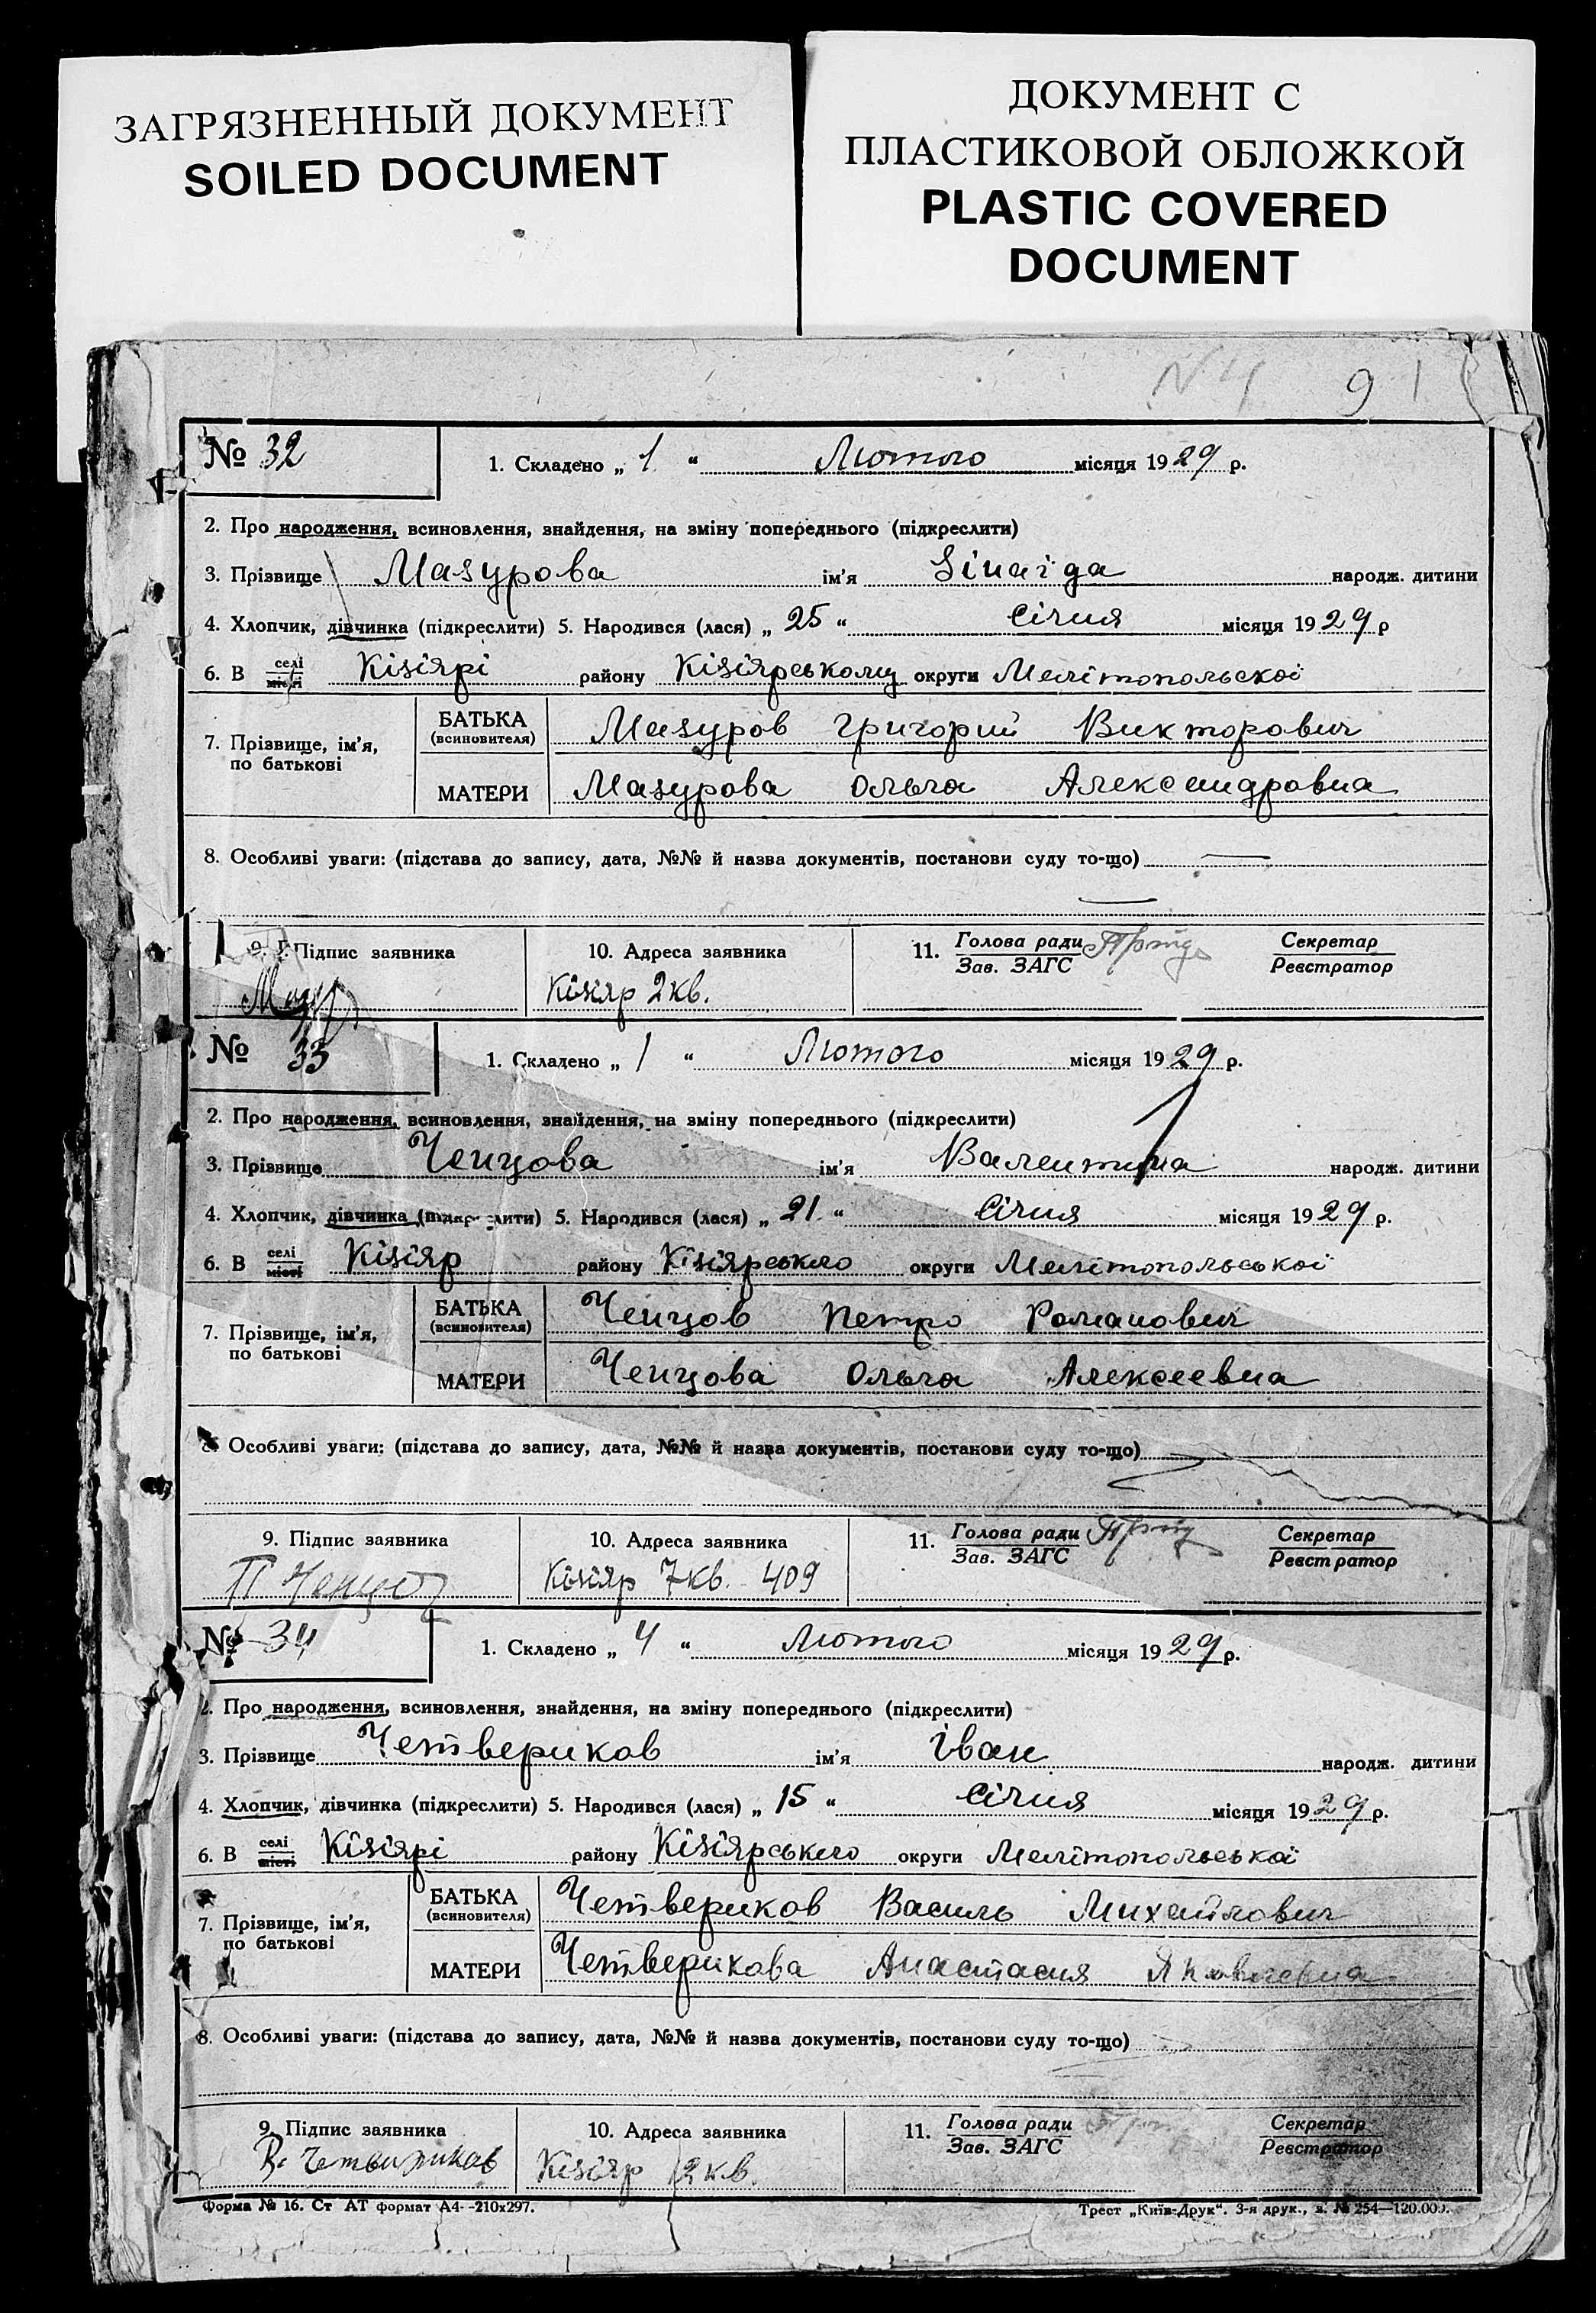 ЗАГРЯЗНЕННЫЙ ДОКУМЕНТ
SOILED DOCUMENT
ДОКУМЕНТ С
ПЛАСТИКОВОЙ ОБЛОЖКОЙ
PLASTIC COVERED
DOCUMENT
N 4 91
№ 32 1. Складено „ 1 “ Лютого місяця 1929 р.
2. Про народження, всиновлення, знайдення, на зміну попереднього (підкреслити)
3. Прізвище Мазурова ім’я Зінаїда народж. дитини
4. Хлопчик, дівчинка (підкреслити) 5. Народився (лася) „ 25 “ Січня місяця 1929 р
6. В селі місті Кізіярі району Кізіярському округи Мелітопольскої
7. Прізвище, ім’я, по батькові
БАТЬКА (всиновителя) Мазуров Григорий Викторович
МАТЕРИ Мазурова Ольга Александровна
8. Особливі уваги: (підстава до запису, дата, №№ й назва документів, постанови суду то-що)
9. Підпис заявника 10. Адреса заявника 11. Голова ради Зав. ЗАГС Секретар Реєстратор
Кізіяр 2кв.
№ 33 1. Складено „ 1 “ Лютого місяця 1929 р.
2. Про народження, всиновлення, знайдення, на зміну попереднього (підкреслити)
3. Прізвище Ченцова ім’я Валентина народж. дитини
4. Хлопчик, дівчинка (підкреслити) 5. Народився (лася) „ 21 “ Січня місяця 1929 р.
6. В селі місті Кізіяр району Кізіярського округи Мелітопольської
7. Прізвище, ім’я, по батькові
БАТЬКА (всиновителя) Ченцов Петро Романович
МАТЕРИ Ченцова Ольга Алексеевна
8. Особливі уваги: (підстава до запису, дата, №№ й назва документів, постанови суду то-що)
9. Підпис заявника 10. Адреса заявника 11. Голова ради Зав. ЗАГС Секретар Реєстратор
П Ченцов Кізіяр 7кв. 409
№ 34 1. Складено „ 4 “ Лютого місяця 1929 р.
2. Про народження, всиновлення, знайдення, на зміну попереднього (підкреслити)
3. Прізвище Четвериков ім’я Іван народж. дитини
4. Хлопчик, дівчинка (підкреслити) 5. Народився (лася) „ 15 “ Січня місяця 1929 р.
6. В селі місті Кізіярі району Кізіярського округи Мелітопольської
7. Прізвище, ім’я, по батькові
БАТЬКА (всиновителя) Четвериков Василь Михайлович
МАТЕРИ Четверикова Анастасия Яковлевна
8. Особливі уваги: (підстава до запису, дата, №№ й назва документів, постанови суду то-що)
9. Підпис заявника 10. Адреса заявника 11. Голова ради Зав. ЗАГС Секретар Реєстратор
В. Четвериков Кізіяр 2кв.
Форма № 16. Ст АТ формат А4--210х297. Трест „Київ-Друк“. 3-я друк., з. № 254—120.000.